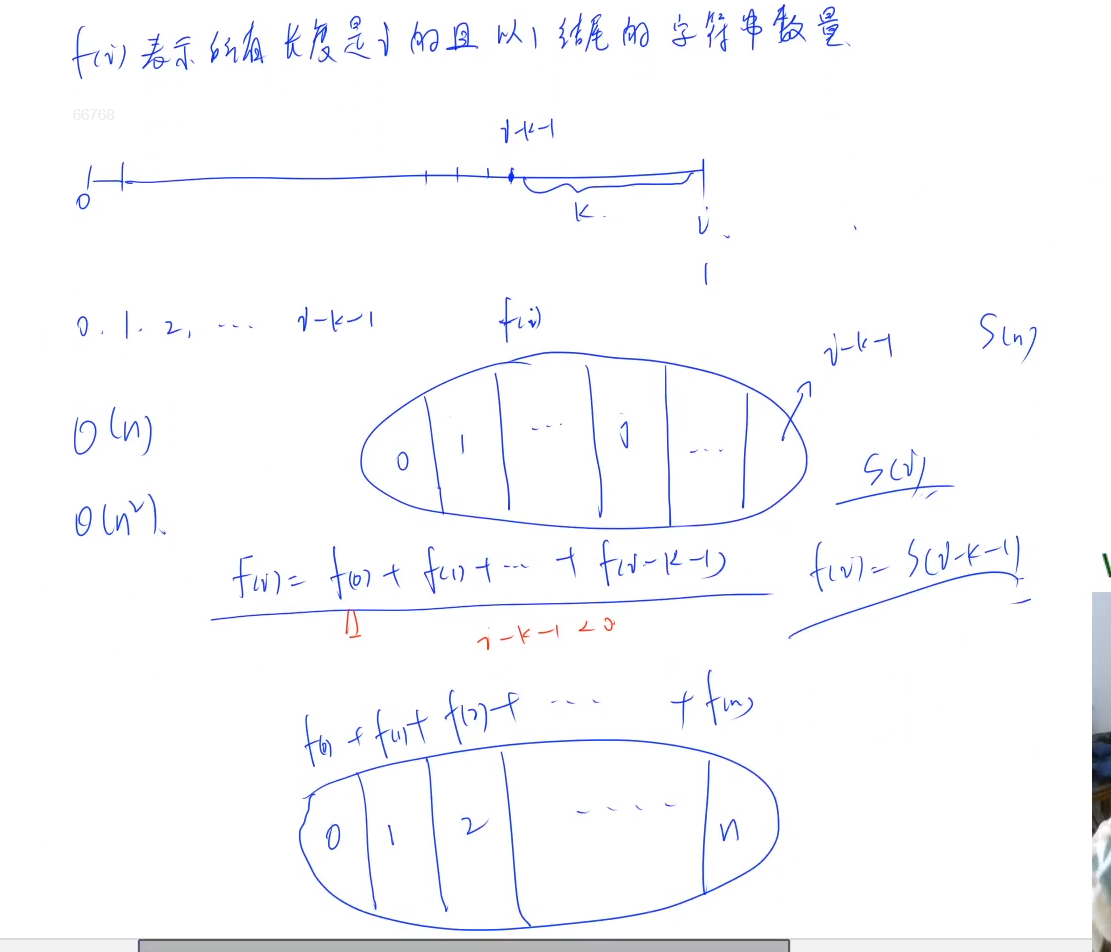 f(i) 表示 所有 长度是 i 的且 以 1 结尾 的 字符串数量.
66768
i-k-1
0
k.
i
1
0. 1. 2, ... i-k-1
f(i)
i-k-1
S(n)
O(n)
0 1 ... j ...
S(i)
O(n²).
f(i) = f(0) + f(1) + ... + f(i-k-1)
f(i) = S(i-k-1)
i-k-1 < 0
f(0) + f(1) + f(2) + ... + f(n)
0 1 2 ..... n